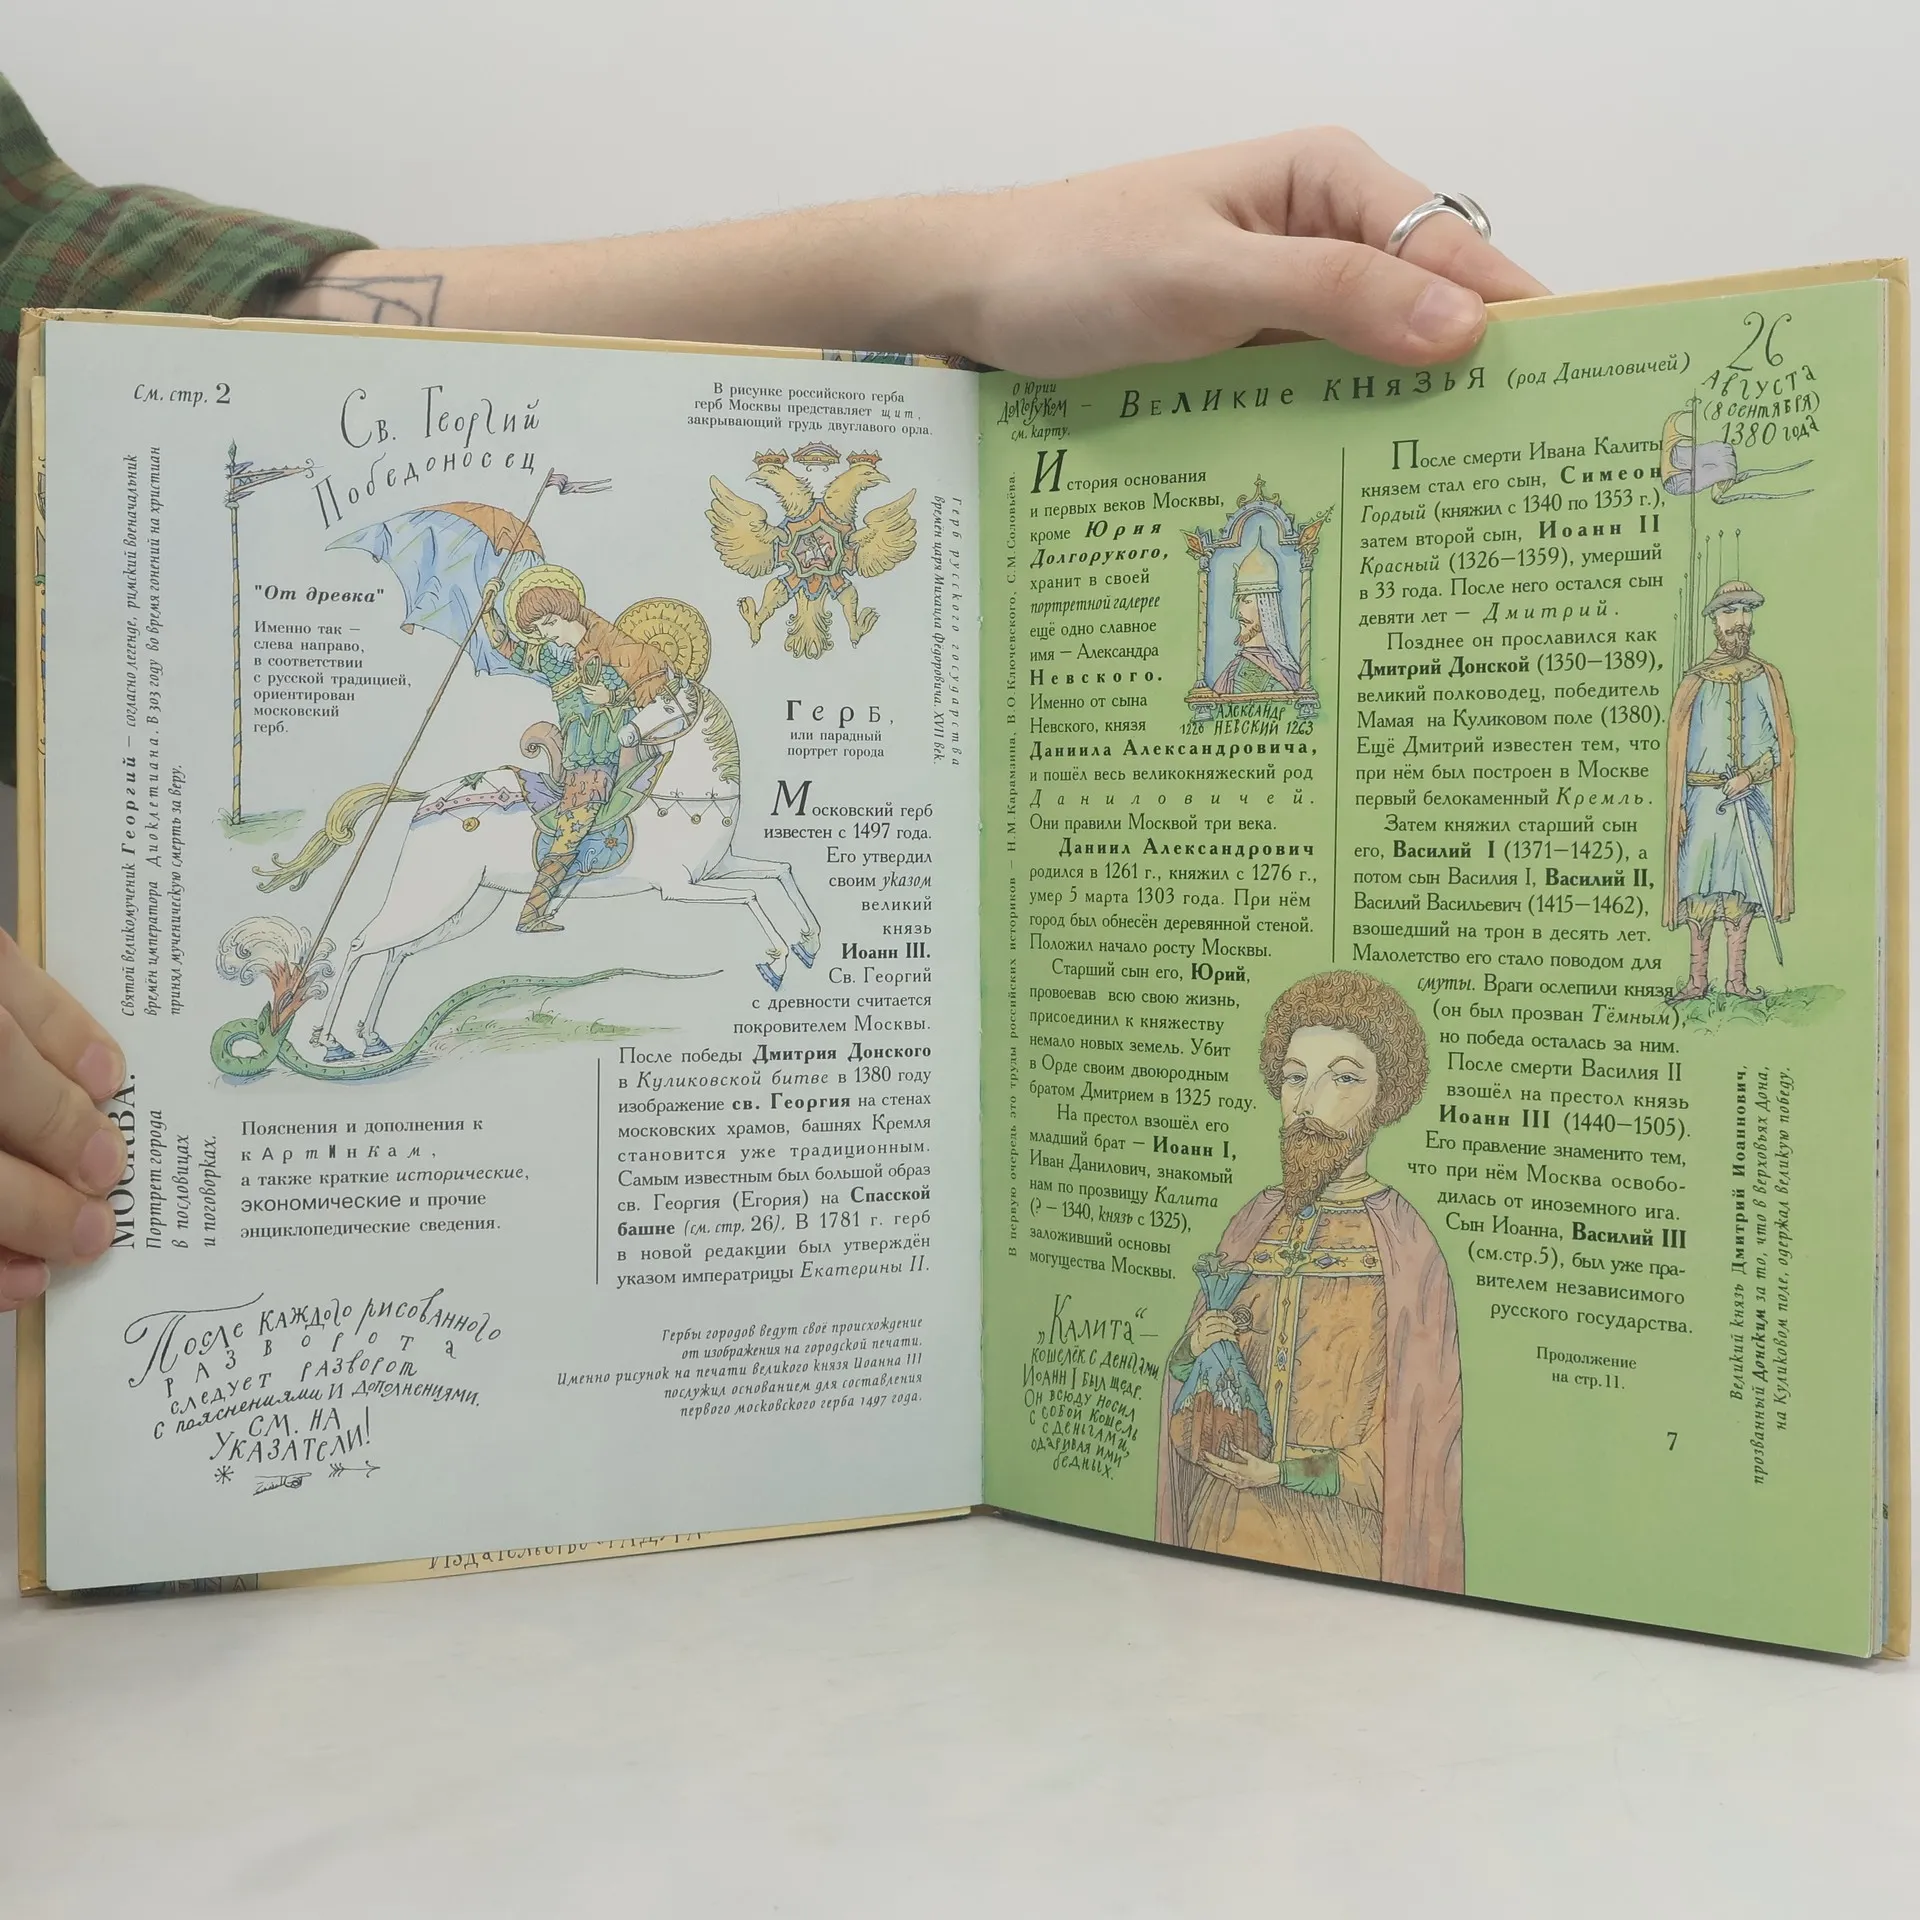 См. стр. 2
Св. Георгий
Победоносец
Святой великомученик Георгий — согласно легенде, римский военачальник
времён императора Диоклетиана. В 303 году во время гонений на христиан
принял мученическую смерть за веру.
"От древка"
Именно так —
слева направо,
в соответствии
с русской традицией,
ориентирован
московский
герб.
В рисунке российского герба
герб Москвы представляет щит,
закрывающий грудь двуглавого орла.
Герб русского государства
времён царя Михаила Фёдоровича. XVII век.
Герб,
или парадный
портрет города
Московский герб
известен с 1497 года.
Его утвердил
своим указом
великий
князь
Иоанн III.
Св. Георгий
с древности считается
покровителем Москвы.
После победы Дмитрия Донского
в Куликовской битве в 1380 году
изображение св. Георгия на стенах
московских храмов, башнях Кремля
становится уже традиционным.
Самым известным был большой образ
св. Георгия (Егория) на Спасской
башне (см. стр. 26). В 1781 г. герб
в новой редакции был утверждён
указом императрицы Екатерины II.
МОСКВА.
Портрет города
в пословицах
и поговорках.
Пояснения и дополнения к
картинкам,
а также краткие исторические,
экономические и прочие
энциклопедические сведения.
После каждого рисованного
разворота
следует разворот
с пояснениями и дополнениями.
См. на
указатели!
Гербы городов ведут своё происхождение
от изображения на городской печати.
Именно рисунок на печати великого князя Иоанна III
послужил основанием для составления
первого московского герба 1497 года.
Издательство
О Юрии
Долгоруком
см. карту.
— Великие князья (род Даниловичей)
26
августа
(8 сентября)
1380 года
В первую очередь это труды российских историков — Н.М.Карамзина, В.О.Ключевского, С.М.Соловьёва.
История основания
и первых веков Москвы,
кроме Юрия
Долгорукого,
хранит в своей
портретной галерее
ещё одно славное
имя — Александра
Невского.
Именно от сына
Невского, князя
Даниила Александровича,
и пошёл весь великокняжеский род
Даниловичей.
Они правили Москвой три века.
Даниил Александрович
родился в 1261 г., княжил с 1276 г.,
умер 5 марта 1303 года. При нём
город был обнесён деревянной стеной.
Положил начало росту Москвы.
Старший сын его, Юрий,
провоевав всю свою жизнь,
присоединил к княжеству
немало новых земель. Убит
в Орде своим двоюродным
братом Дмитрием в 1325 году.
На престол взошёл его
младший брат — Иоанн I,
Иван Данилович, знакомый
нам по прозвищу Калита
(? — 1340, князь с 1325),
заложивший основы
могущества Москвы.
Александр
1220 Невский 1263
„Калита“ —
кошелёк с деньгами.
Иоанн I был щедр.
Он всюду носил
с собой кошель
с деньгами,
одаривая ими
бедных.
После смерти Ивана Калиты
князем стал его сын, Симеон
Гордый (княжил с 1340 по 1353 г.),
затем второй сын, Иоанн II
Красный (1326—1359), умерший
в 33 года. После него остался сын
девяти лет — Дмитрий.
Позднее он прославился как
Дмитрий Донской (1350—1389),
великий полководец, победитель
Мамая на Куликовом поле (1380).
Ещё Дмитрий известен тем, что
при нём был построен в Москве
первый белокаменный Кремль.
Затем княжил старший сын
его, Василий I (1371—1425), а
потом сын Василия I, Василий II,
Василий Васильевич (1415—1462),
взошедший на трон в десять лет.
Малолетство его стало поводом для
смуты. Враги ослепили князя
(он был прозван Тёмным),
но победа осталась за ним.
После смерти Василия II
взошёл на престол князь
Иоанн III (1440—1505).
Его правление знаменито тем,
что при нём Москва освобо-
дилась от иноземного ига.
Сын Иоанна, Василий III
(см.стр.5), был уже пра-
вителем независимого
русского государства.
Продолжение
на стр.11.
Великий князь Дмитрий Иоаннович,
прозванный Донским за то, что в верховьях Дона,
на Куликовом поле, одержал великую победу.
7